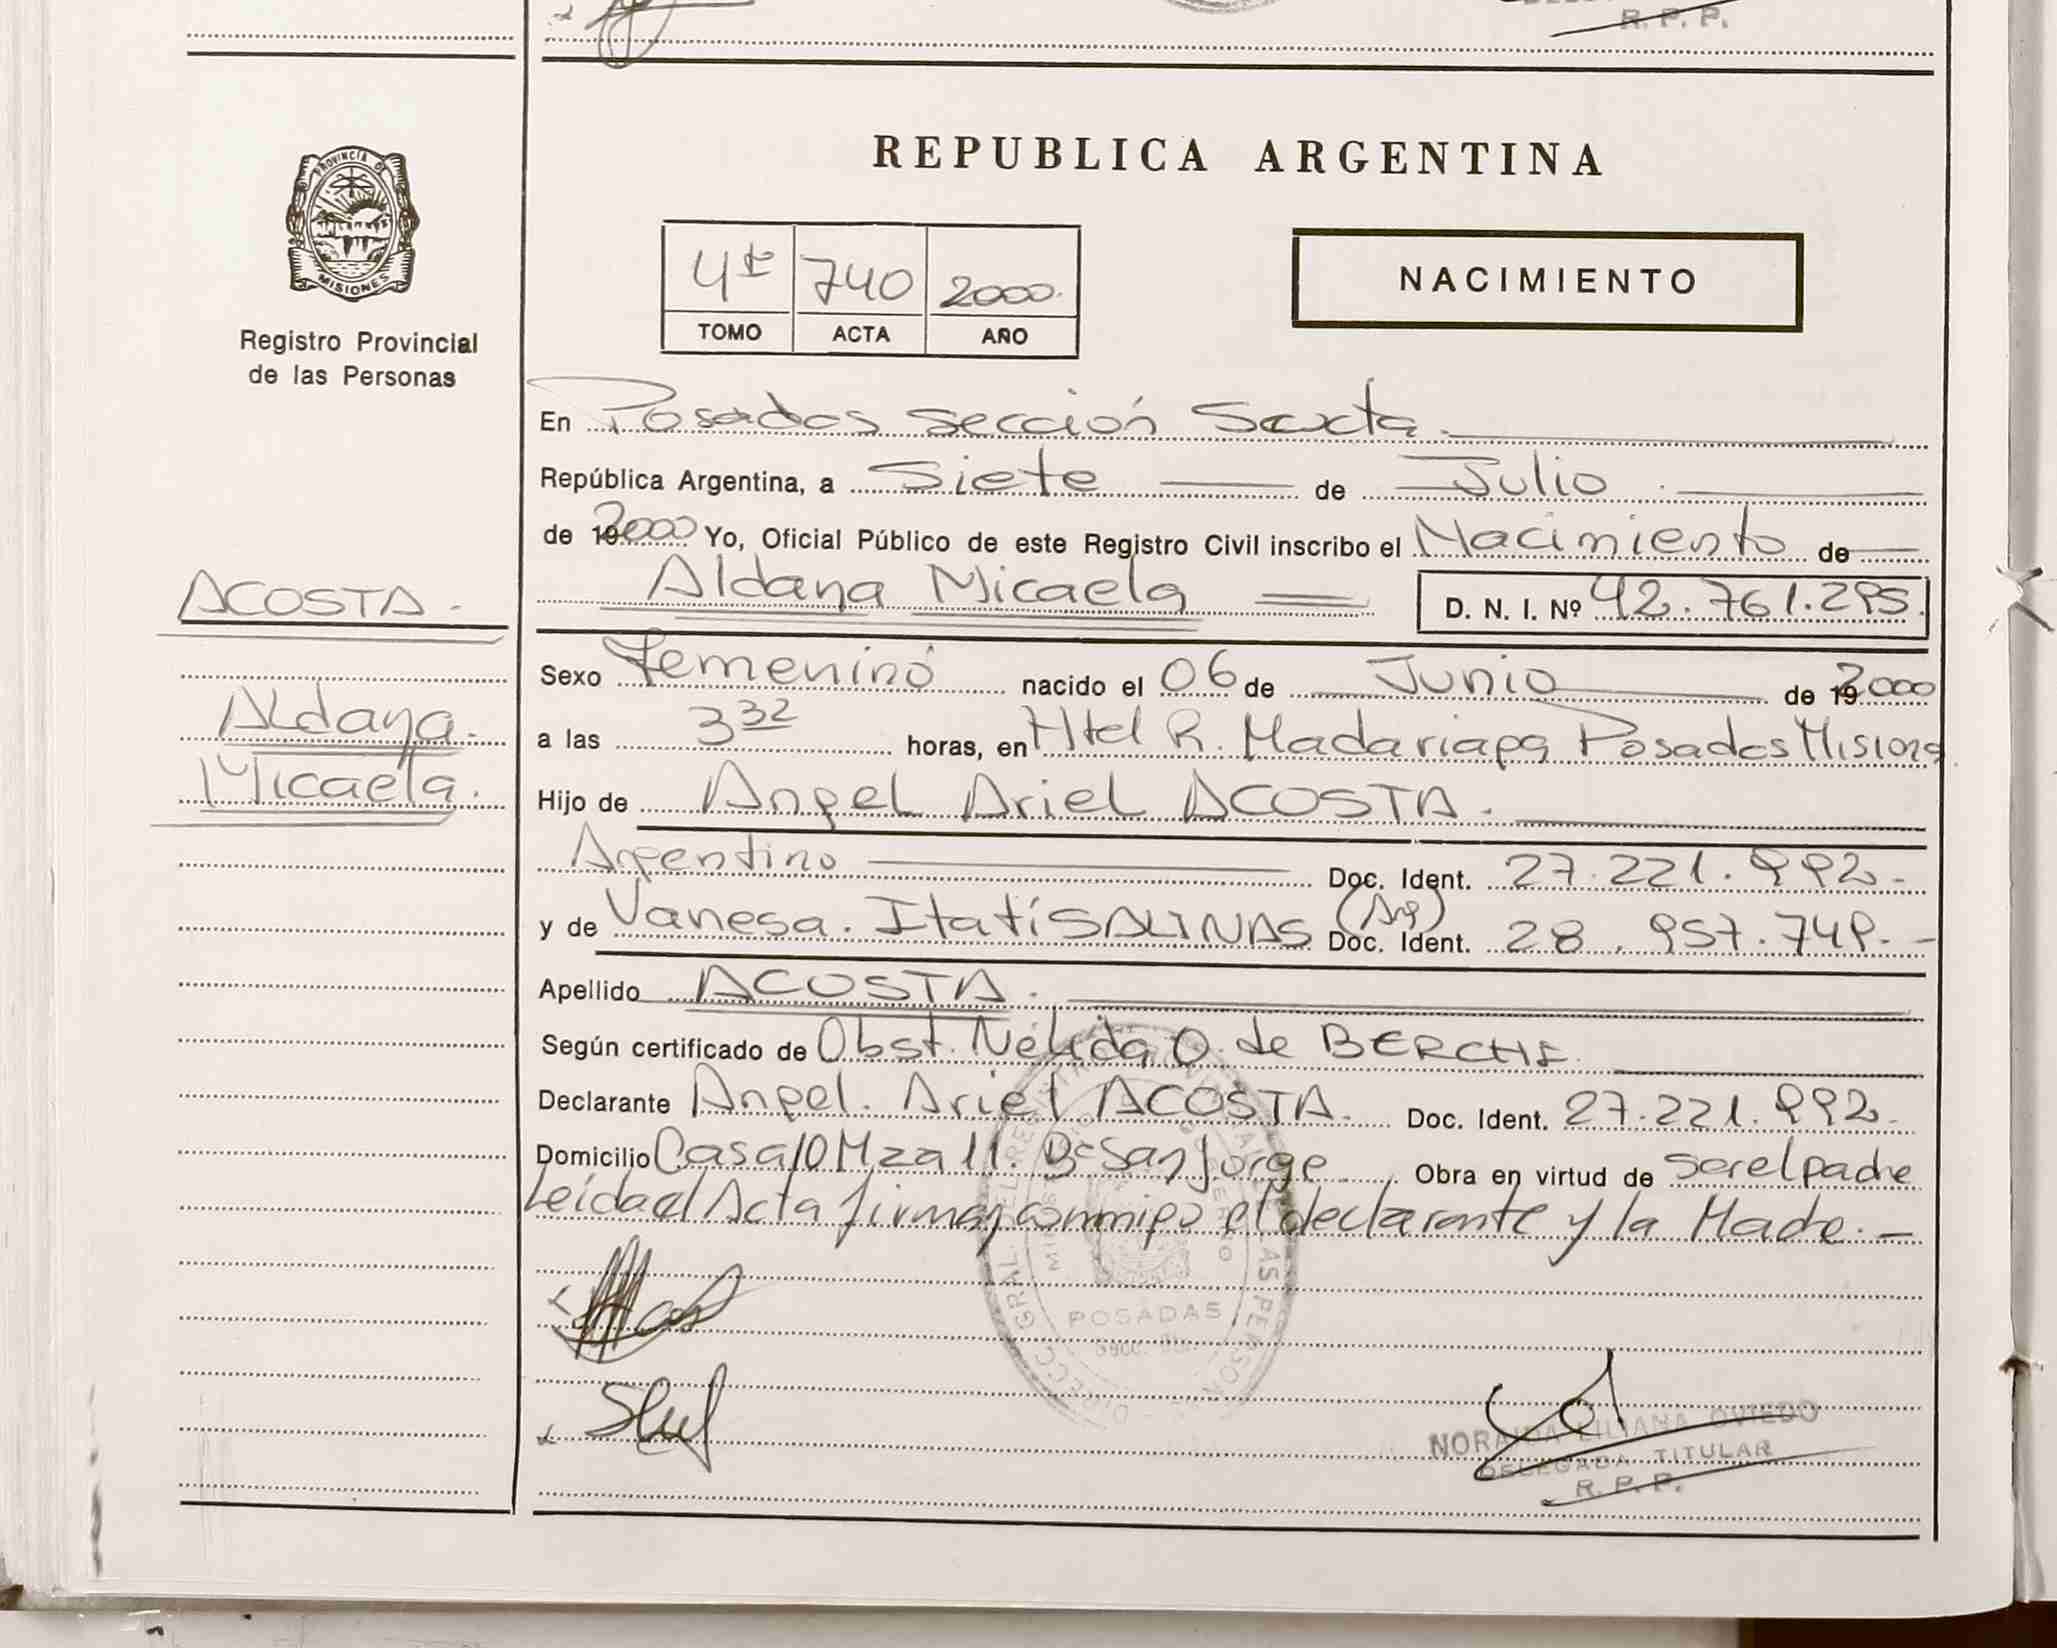 R. P. P.
PROVINCIA DE
MISIONES
Registro Provincial
de las Personas
REPUBLICA ARGENTINA
4º 740 2000.
TOMO ACTA AÑO
NACIMIENTO
En Posadas sección Sexta.
República Argentina, a Siete de Julio
de 192000 Yo, Oficial Público de este Registro Civil inscribo el Nacimiento de
Aldana Micaela D. N. I. Nº 42.761.295.
ACOSTA.
Aldana.
Micaela.
Sexo Femenino nacido el 06 de Junio de 192000
a las 3 32 horas, en Htel R. Madariaga Posadas Misiones
Hijo de Angel Ariel ACOSTA.
Argentino Doc. Ident. 27.221.992.-
y de Vanesa. Itatí SALINAS (Arg) Doc. Ident. 28.957.749.-
Apellido ACOSTA.
Según certificado de Obst. Nélida O. de BERCHE.
Declarante Angel. Ariel ACOSTA. Doc. Ident. 27.221.992.-
Domicilio Casa 10 Mza 11. Bº San Jorge Obra en virtud de ser el padre
Leída el Acta firman conmigo el declarante y la Madre.-
POSADAS
NORAIDA LILIANA OVIEDO
DELEGADA TITULAR
R. P. P.